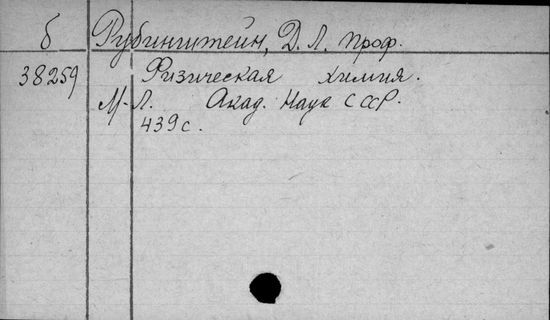 б Рубинштейн, Д. Л. проф.
38259 Физическая химия.
М-Л. Акад. Наук СССР.
439 с.